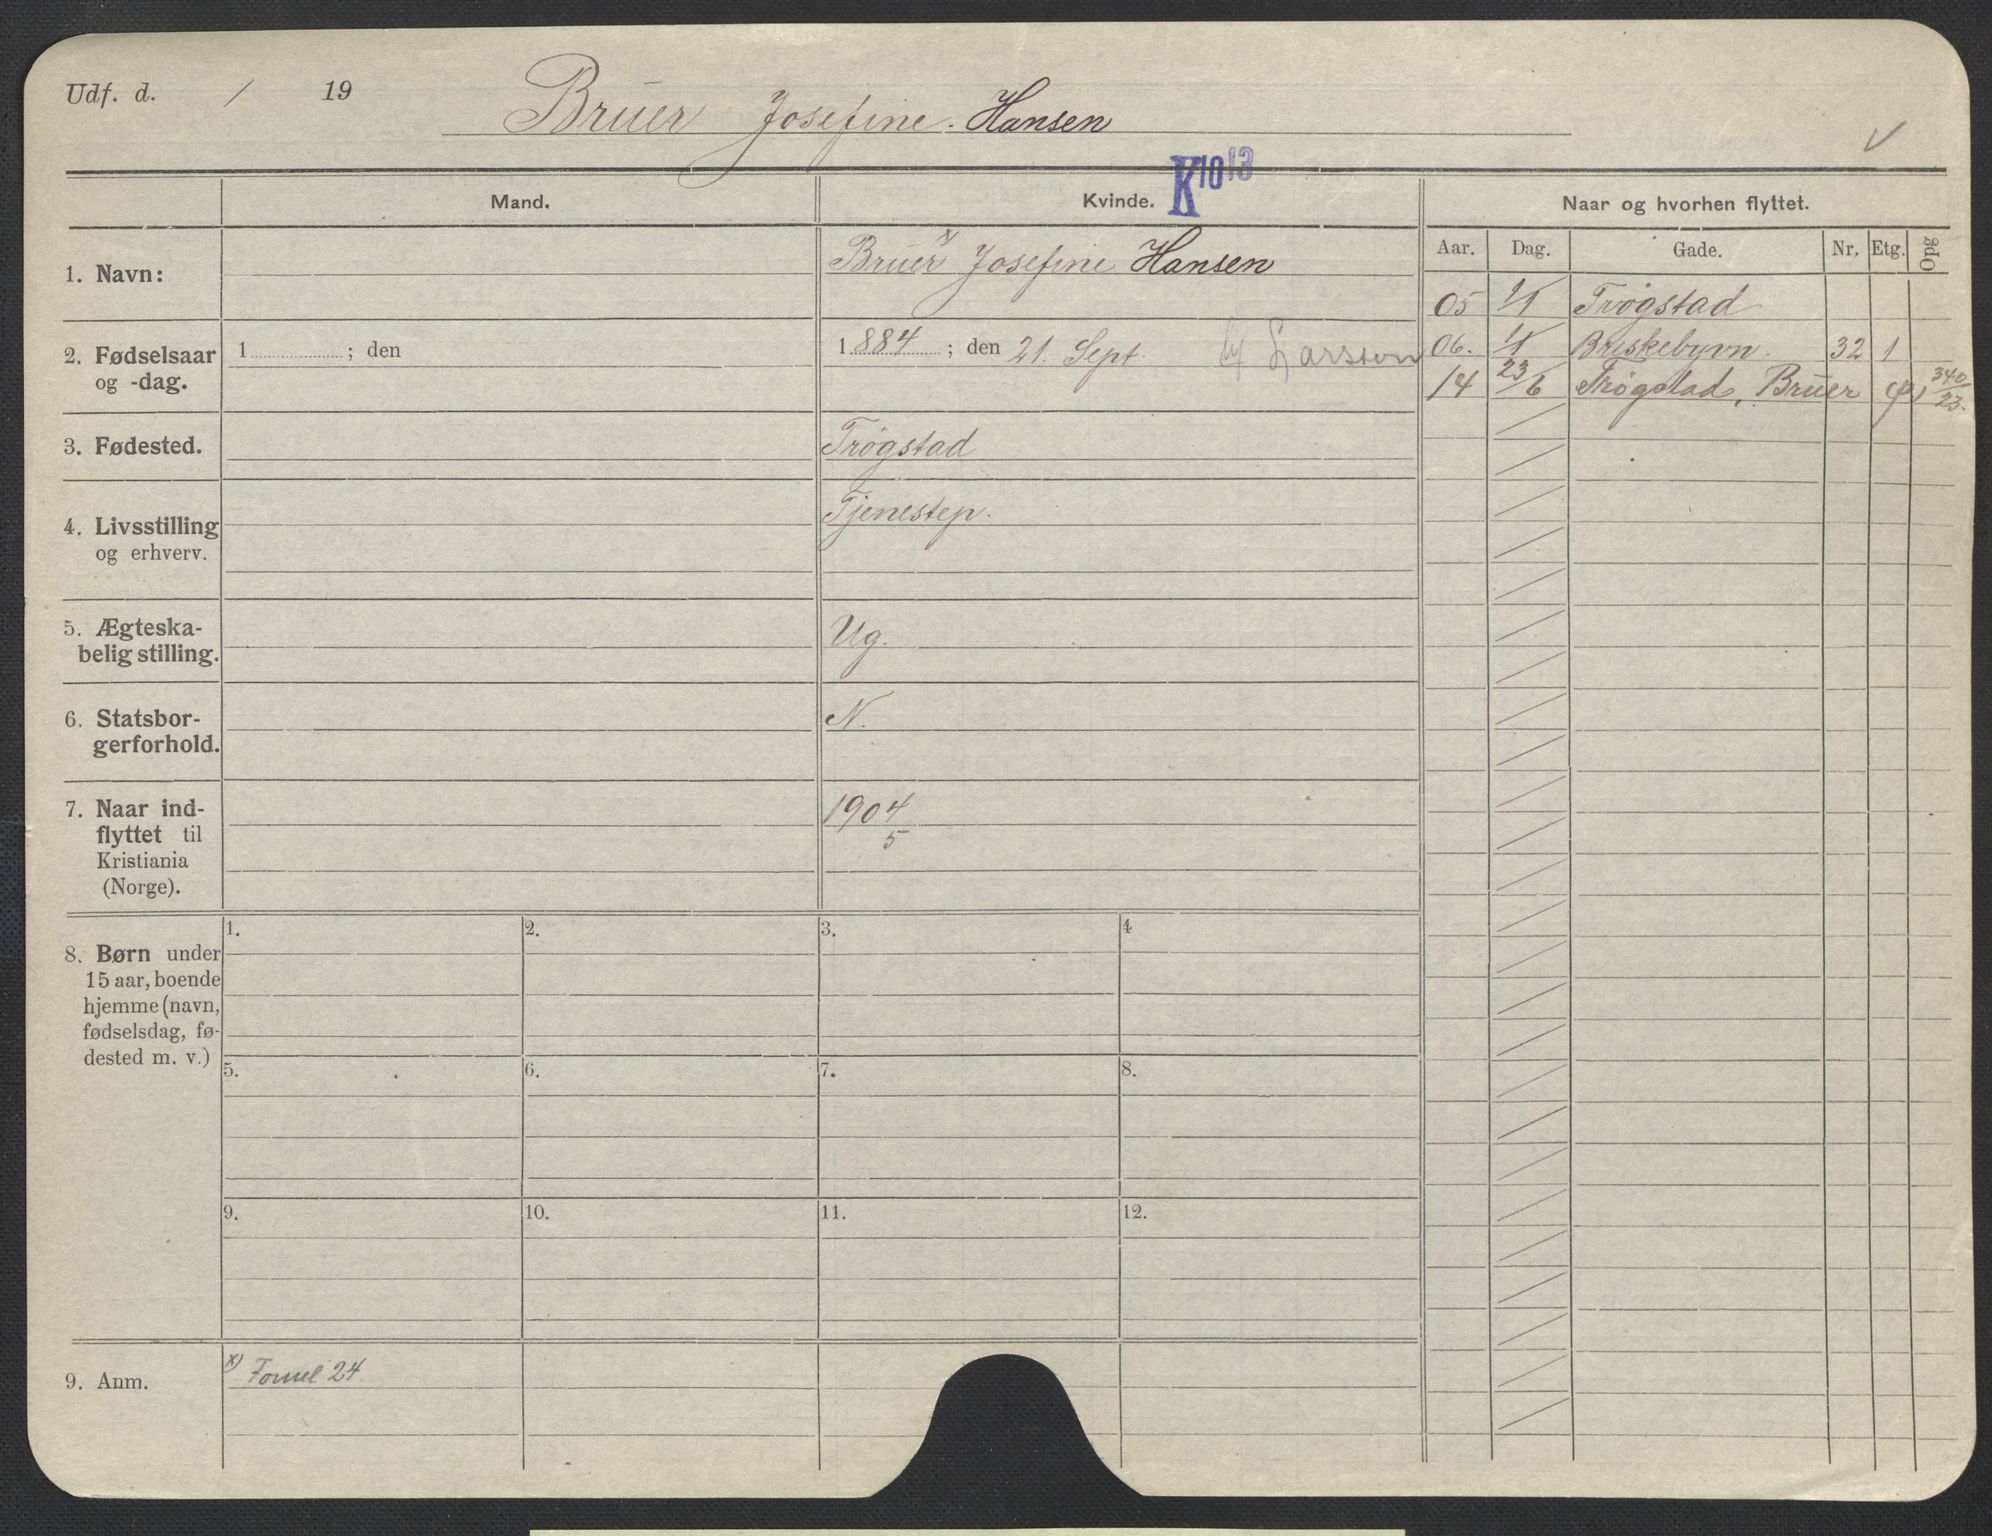 Udf. d. / 19
Bruer Josefine. Hansen
K 10 13
Mand.
Kvinde.
Naar og hvorhen flyttet.
Aar. Dag. Gade. Nr. Etg. Opg
1. Navn:
Bruer x) Josefine Hansen
05 1/1 Trøgstad
2. Fødselsaar
og -dag.
1 ; den
1884 ; den 21. Sept. Larsson
06. 1/1 Briskebyvn. 32 1
14 23/6 Trøgstad, Bruer 340/23.
3. Fødested.
Trøgstad
4. Livsstilling
og erhverv.
Tjenestep.
5. Ægteska-
belig stilling.
Ug.
6. Statsbor-
gerforhold.
N.
7. Naar ind-
flyttet til
Kristiania
(Norge).
1904
5
8. Børn under
15 aar, boende
hjemme (navn,
fødselsdag, fø-
dested m. v.)
1. 2. 3. 4
5. 6. 7. 8.
9. 10. 11. 12.
9. Anm.
x) 24.